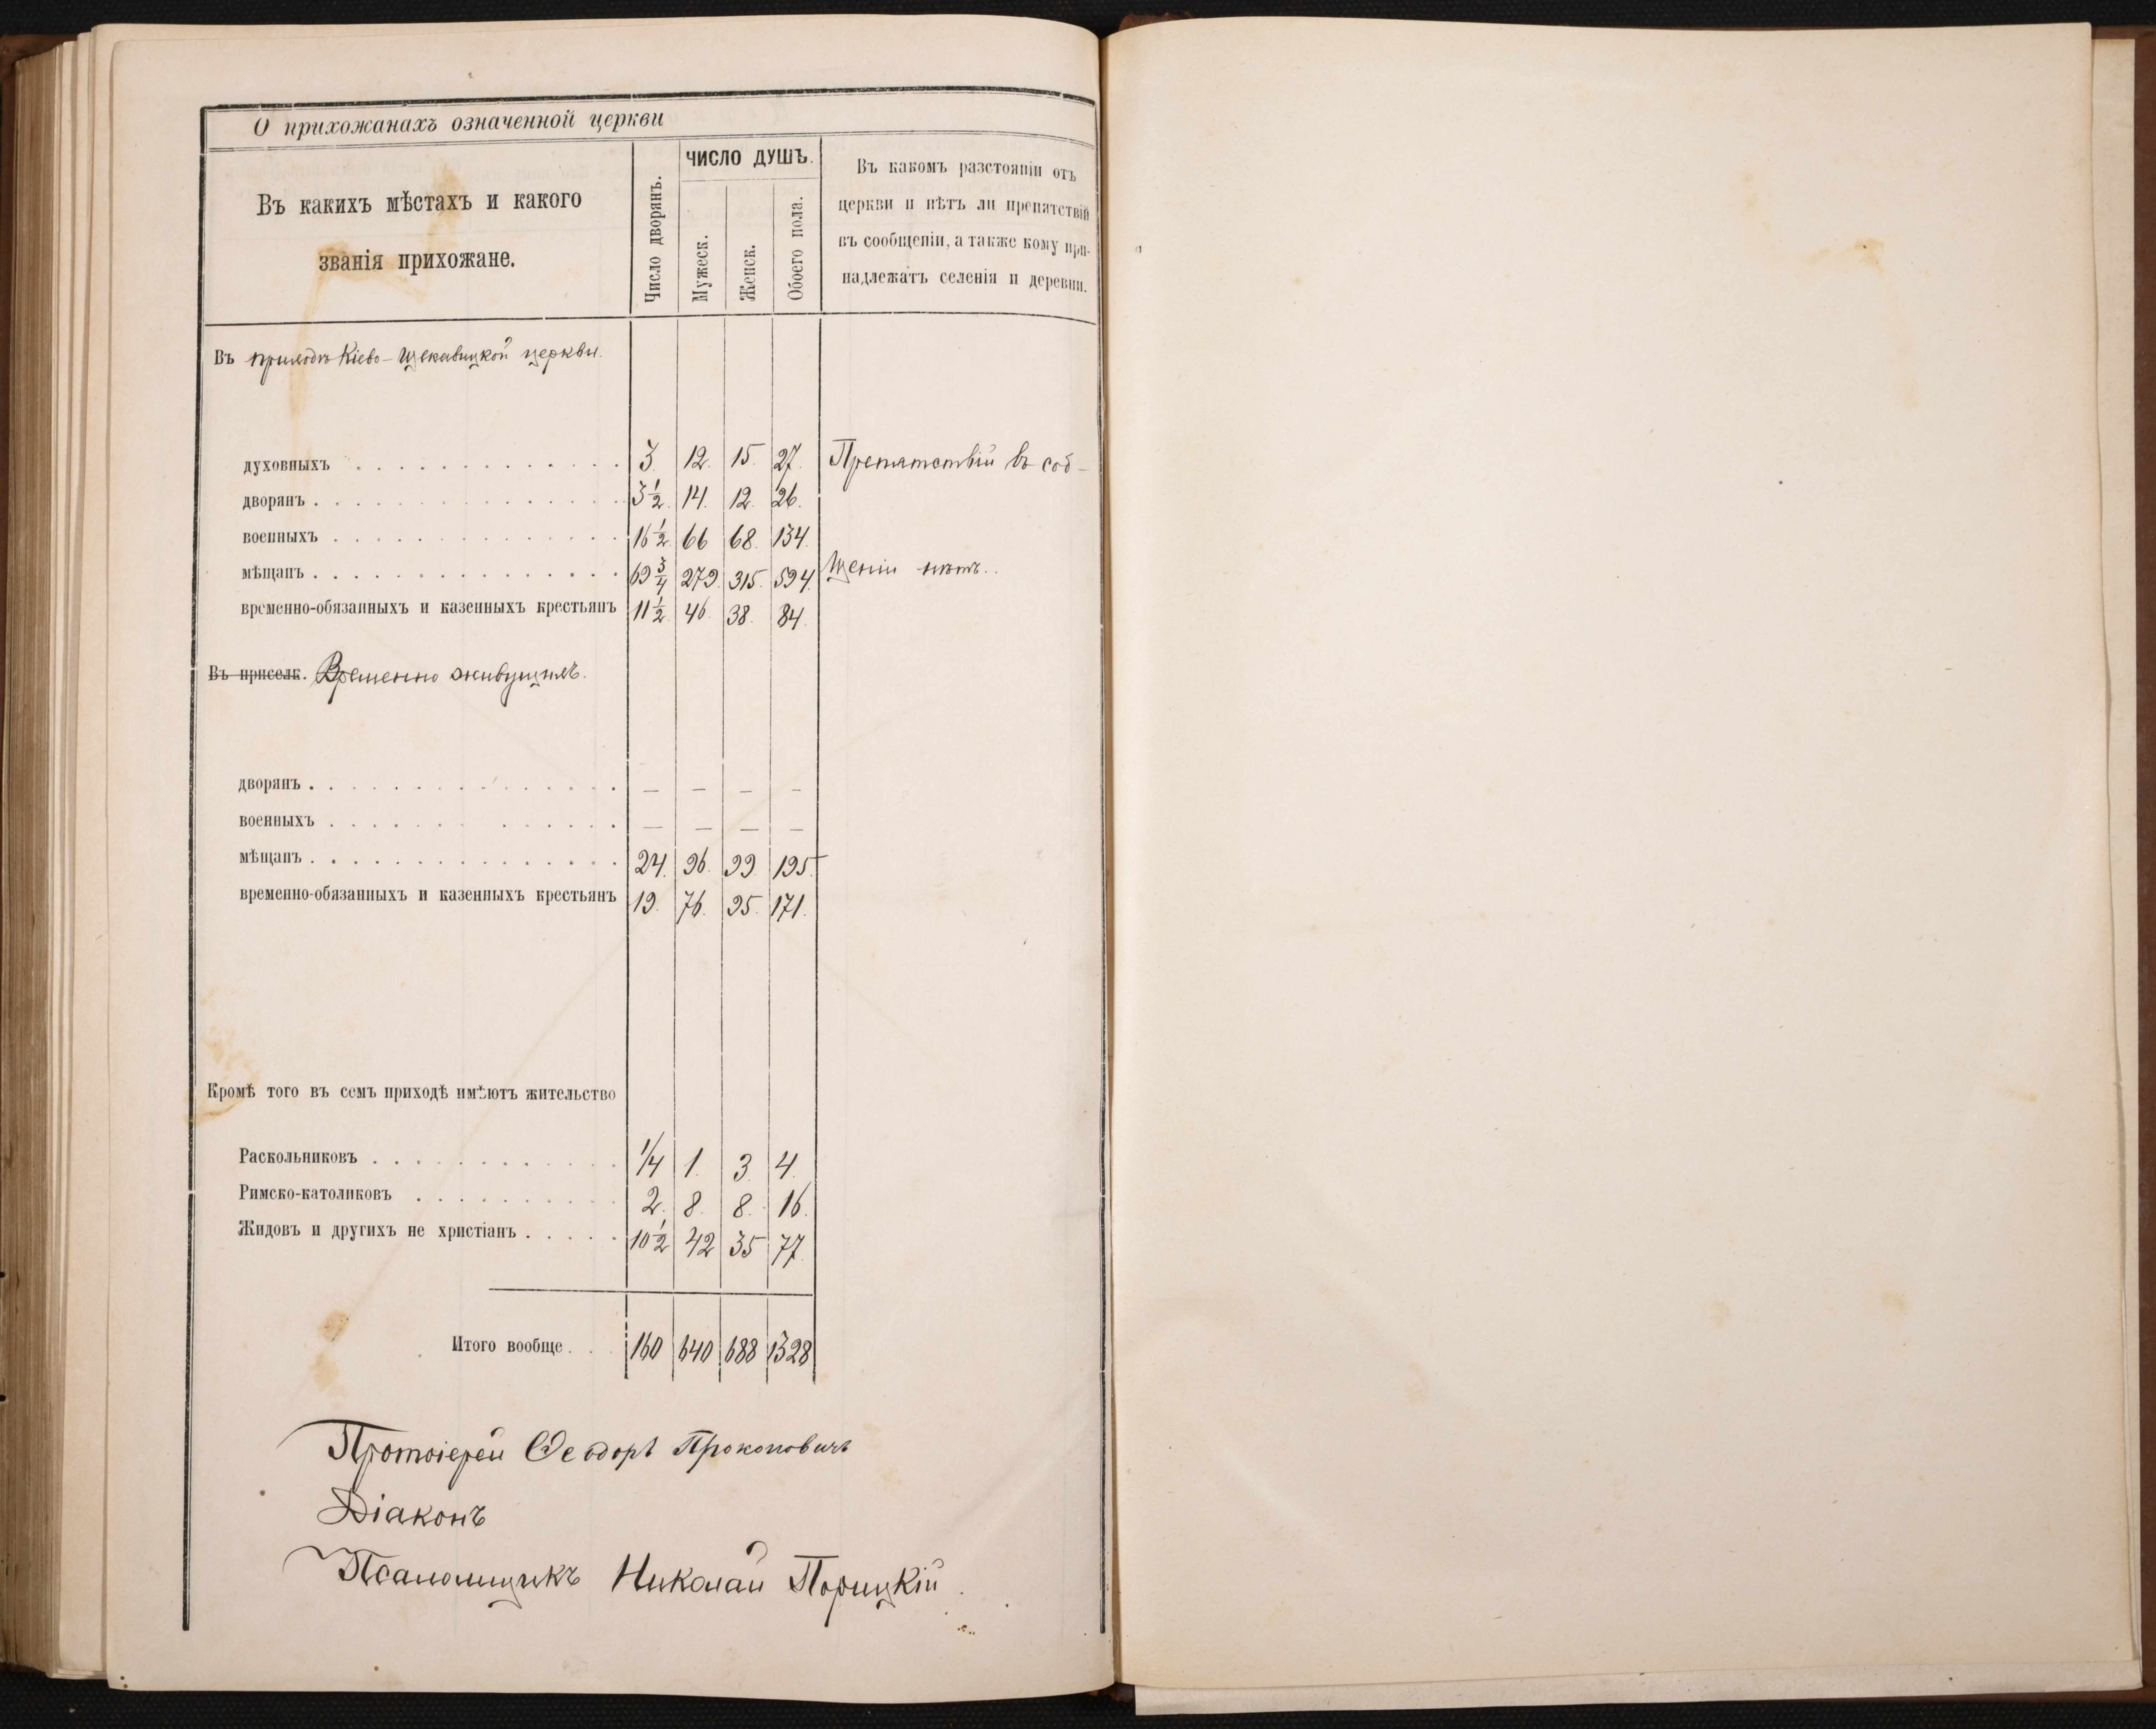 О прихожанахъ означенной церкви
Въ какихъ мѣстахъ и какого
званія прихожане.
Число дворянъ.
ЧИСЛО ДУШЪ.
Мужеск.
Женск.
Обоего пола.
Въ какомъ разстояніи отъ
церкви и нѣтъ ли препятствій
въ сообщеніи, а также кому при-
надлежатъ селенія и деревни.
Въ приходѣ Кіево-Щекавицкой церкви.
духовныхъ . . . 3. 12. 15. 27. Препятствій въ соб-
дворянъ . . . 3 1/2. 14. 12. 26.
военныхъ . . . 16 1/2. 66 68. 134.
мѣщанъ . . . 69 3/4 279. 315. 594. щеніи нѣтъ..
временно-обязанныхъ и казенныхъ крестьянъ 11 1/2. 46. 38. 84.
Въ приселк. Временно живущихъ.
дворянъ . . . — — — —
военныхъ . . . — — — —
мѣщанъ . . . 24. 96. 99. 195.
временно-обязанныхъ и казенныхъ крестьянъ 19. 76. 95. 171.
Кромѣ того въ семъ приходѣ имѣютъ жительство
Раскольниковъ . . . 1/4 1. 3. 4.
Римско-католиковъ . . . 2. 8. 8. 16.
Жидовъ и другихъ не христіанъ . . . 10 1/2 42 35 77.
Итого вообще . . . 160 640 688 1328
Протоіерей Ѳеодоръ Прокоповичъ
Діаконъ
Псаломщикъ Николай Порицкій.